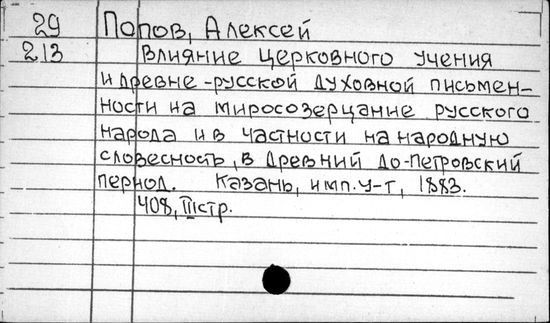 29 Попов, Алексей
213 Влияние церковного учения
и древне-русской духовной письмен-
ности на миросозерцание русского
народа и в частности на народную
словесность, в древний до-петровский
период. Казань, имп. у-т, 1883.
408, III стр.